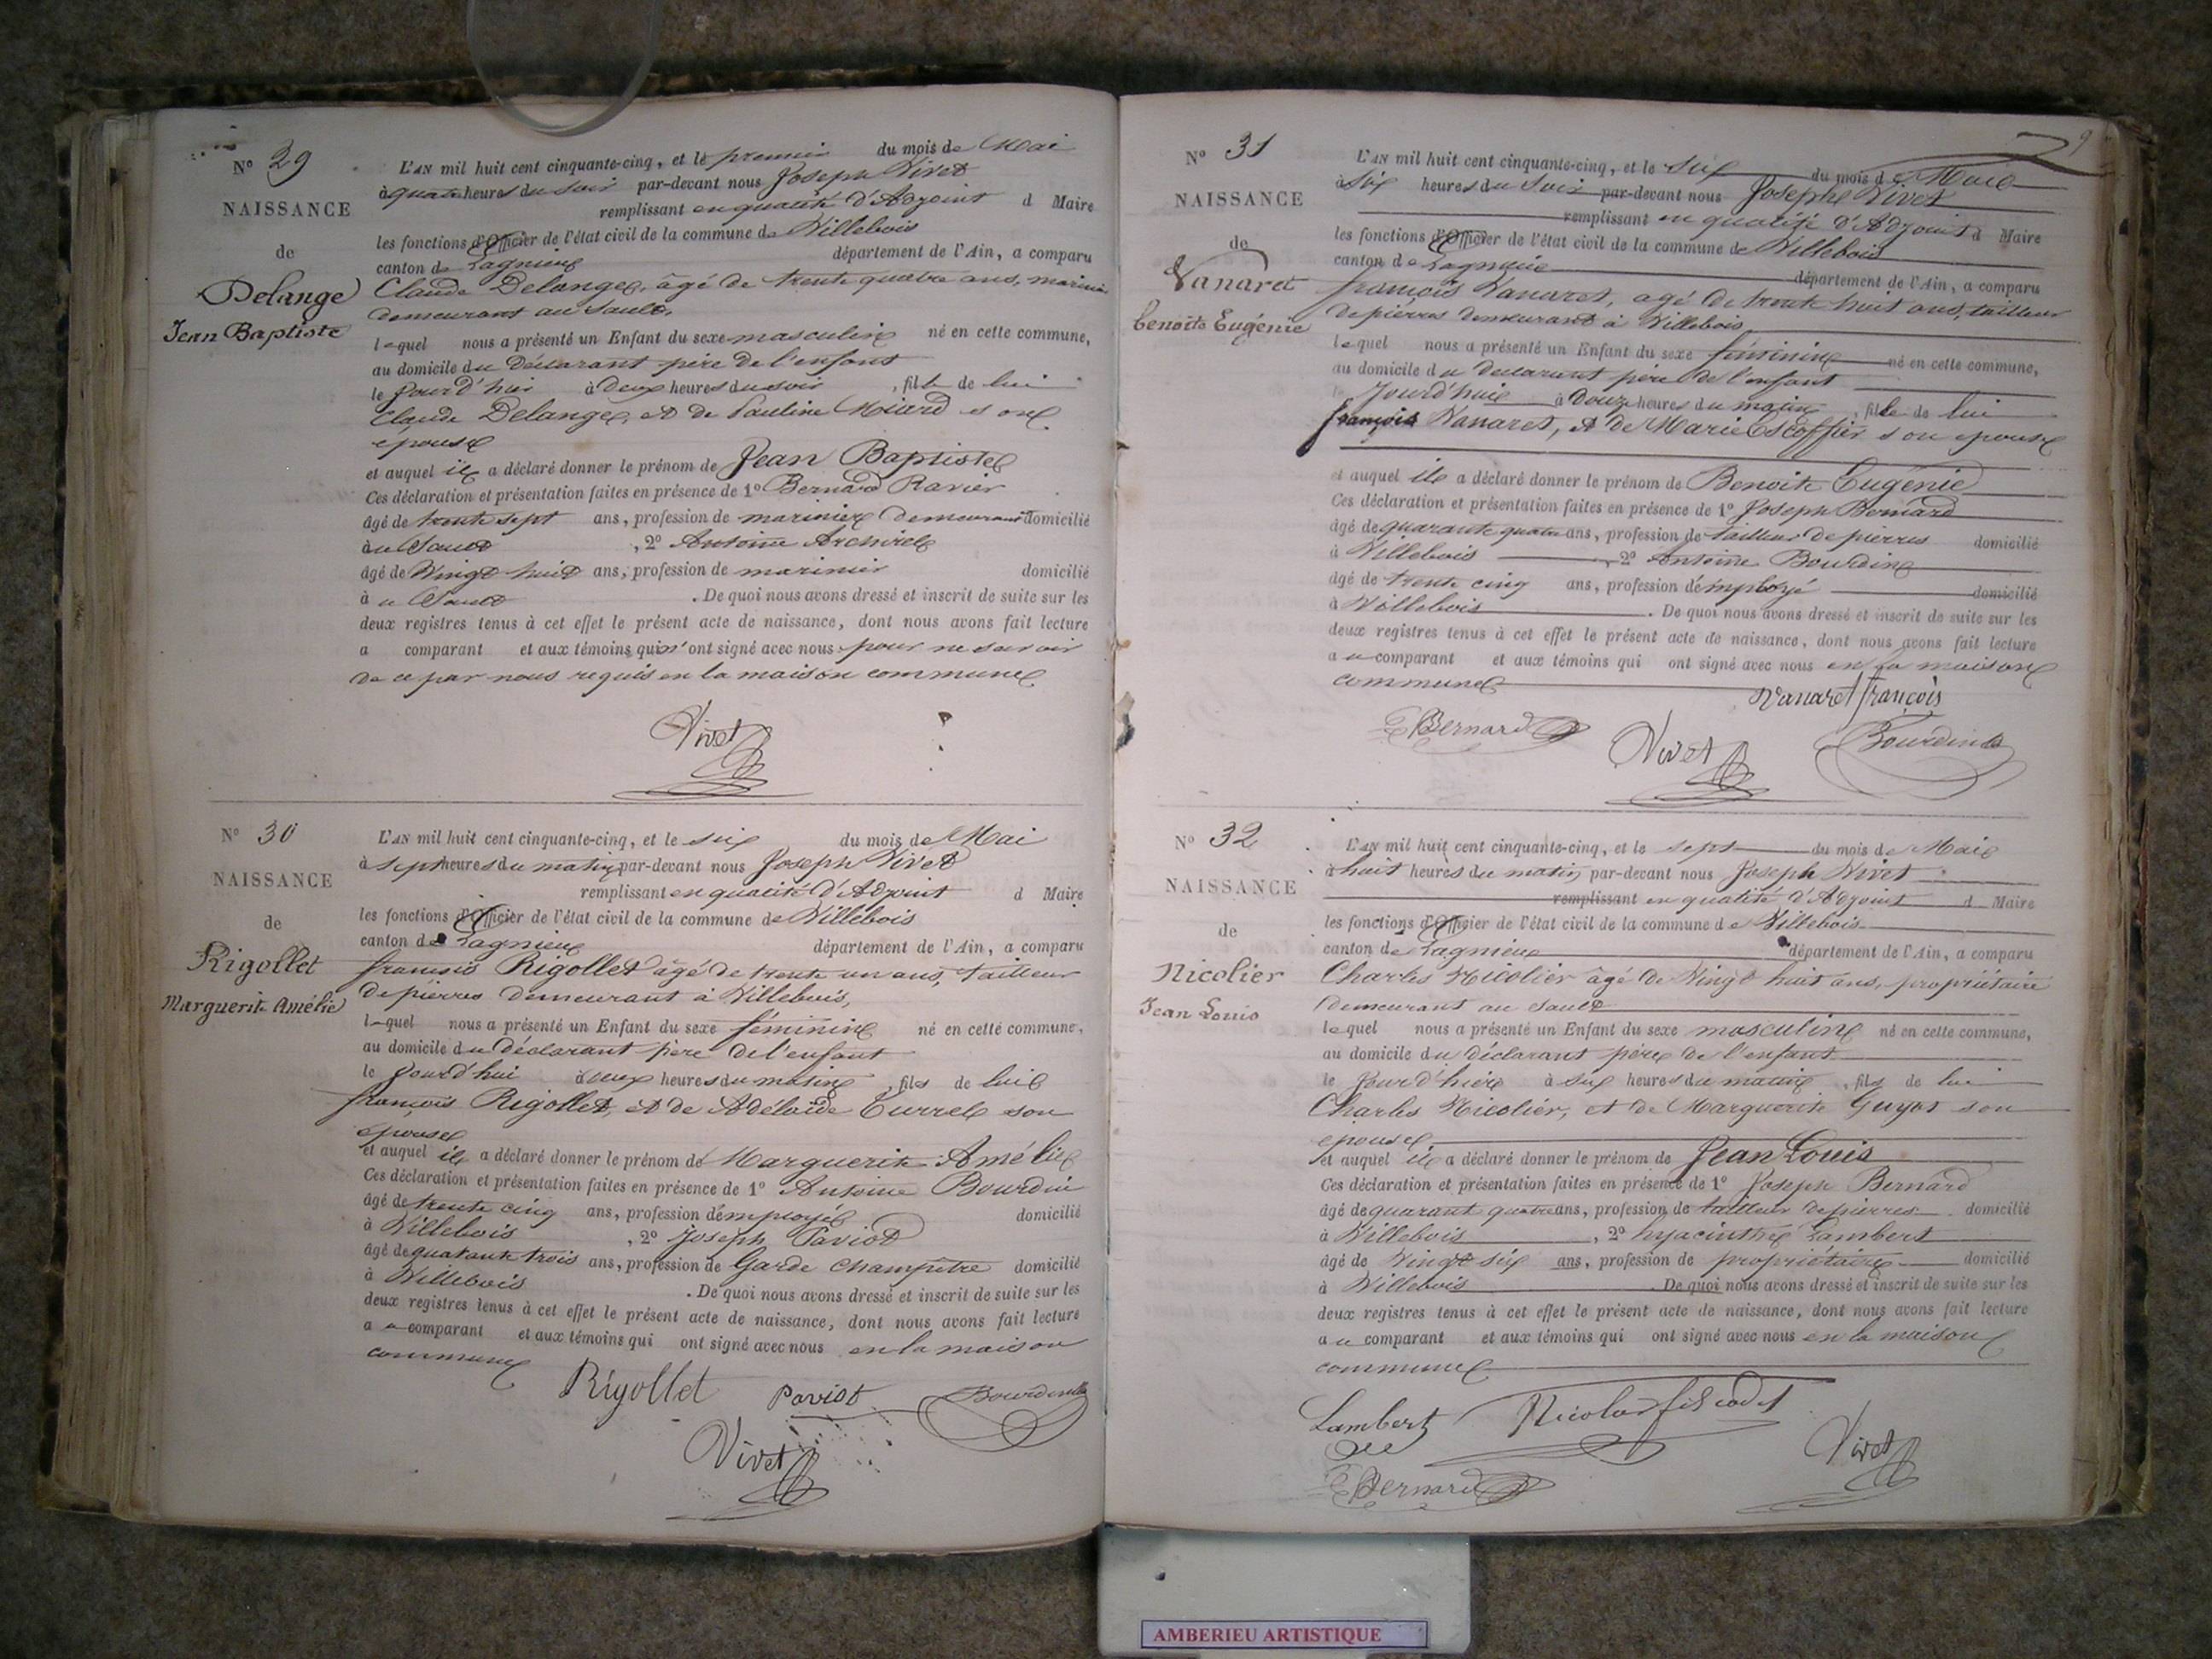 Nº 29
NAISSANCE
de
Delange
Jean Baptiste
L'AN mil huit cent cinquante-cinq, et le premier du mois de Mai
à quatre heures du soir par-devant nous Joseph Vivet
remplissant en qualité d'Adjoint d Maire
les fonctions d'Officier de l'état civil de la commune de Villebois
canton de Lagnieu département de l'Ain, a comparu
Claude Delange, âgé de trente quatre ans, marinier
demeurant au Sault,
lequel nous a présenté un Enfant du sexe masculin né en cette commune,
au domicile du Déclarant père de l'enfant
le jourd'hui à deux heures du soir, fils de lui
Claude Delange, et de Pauline Miard son
epouse
et auquel il a déclaré donner le prénom de Jean Baptiste
Ces déclaration et présentation faites en présence de 1º Bernard Ravier
âgé de trente sept ans, profession de marinier demeurant domicilié
au Sault, 2º Antoine
âgé de Vingt huit ans, profession de marinier domicilié
à u Sault. De quoi nous avons dressé et inscrit de suite sur les
deux registres tenus à cet effet le présent acte de naissance, dont nous avons fait lecture
a comparant et aux témoins qui n'ont signé avec nous pour ne savoir
de ce par nous requis en la maison commune
Vivet
Nº 30
NAISSANCE
de
Rigollet
Marguerite Amélie
L'AN mil huit cent cinquante-cinq, et le six du mois de Mai
à sept heures du matin par-devant nous Joseph Vivet
remplissant en qualité d'Adjoint d Maire
les fonctions d'Officier de l'état civil de la commune de Villebois
canton de Lagnieu département de l'Ain, a comparu
francois Rigollet âgé de trente un ans, tailleur
de pierres demeurant à Villebois,
lequel nous a présenté un Enfant du sexe féminin né en cette commune,
au domicile du déclarant père de l'enfant
le jourd'hui à deux heures du matin, fils de lui
françois Rigollet, et de Adélaïde Currel son
épouse
et auquel il a déclaré donner le prénom de Marguerite Amélie
Ces déclaration et présentation faites en présence de 1º Antoine Bourdin
âgé de trente cinq ans, profession d'employé domicilié
à Villebois, 2º Joseph Paviot
âgé de quarante trois ans, profession de Garde champêtre domicilié
à Villebois. De quoi nous avons dressé et inscrit de suite sur les
deux registres tenus à cet effet le présent acte de naissance, dont nous avons fait lecture
a u comparant et aux témoins qui ont signé avec nous en la maison
commune
Rigollet Paviot Bourdin
Vivet
9
Nº 31
NAISSANCE
de
Vanaret
benoite Eugénie
L'AN mil huit cent cinquante-cinq, et le six du mois de Mai
à six heures du soir par-devant nous Joseph Vivet
remplissant en qualité d'Adjoint d Maire
les fonctions d'Officier de l'état civil de la commune de Villebois
canton de Lagnieu département de l'Ain, a comparu
françois Vanaret, agé de trente huit ans, tailleur
de pierres demeurant à Villebois
lequel nous a présenté un Enfant du sexe féminin né en cette commune,
au domicile du déclarant père de l'enfant
le Jourd'hui à Douze heures du matin, fille de lui
françois Vanaret, et de Marie Escoffier son epouse
et auquel il a déclaré donner le prénom de Benoite Eugénie
Ces déclaration et présentation faites en présence de 1º Joseph Bernard
âgé de quarante quatre ans, profession de tailleur de pierres domicilié
à Villebois, 2º Antoine Bourdin
âgé de trente cinq ans, profession d'employé domicilié
à Villebois. De quoi nous avons dressé et inscrit de suite sur les
deux registres tenus à cet effet le présent acte de naissance, dont nous avons fait lecture
a u comparant et aux témoins qui ont signé avec nous en la maison
commune
Vanaret françois
Bernard Vivet Bourdin
Nº 32
NAISSANCE
de
Nicolier
Jean Louis
L'AN mil huit cent cinquante-cinq, et le sept du mois de Mai
à huit heures du matin par-devant nous Joseph Vivet
remplissant en qualité d'Adjoint d Maire
les fonctions d'Officier de l'état civil de la commune de Villebois
canton de Lagnieu département de l'Ain, a comparu
Charles Nicolier âgé de Vingt huit ans, propriétaire
demeurant au Sault
lequel nous a présenté un Enfant du sexe masculin né en cette commune,
au domicile du déclarant père de l'enfant
le jour d'hier à six heures du matin, fils de lui
Charles Nicolier, et de Marguerite Guyot son
epouse
et auquel il a déclaré donner le prénom de Jean Louis
Ces déclaration et présentation faites en présence de 1º Joseph Bernard
âgé de quarant quatre ans, profession de tailleur de pierres domicilié
à Villebois, 2º hyacinthe Lambert
âgé de Vingt six ans, profession de propriétaire domicilié
à Villebois. De quoi nous avons dressé et inscrit de suite sur les
deux registres tenus à cet effet le présent acte de naissance, dont nous avons fait lecture
a u comparant et aux témoins qui ont signé avec nous en la maison
commune
Lambert
Vivet
Bernard
AMBERIEU ARTISTIQUE